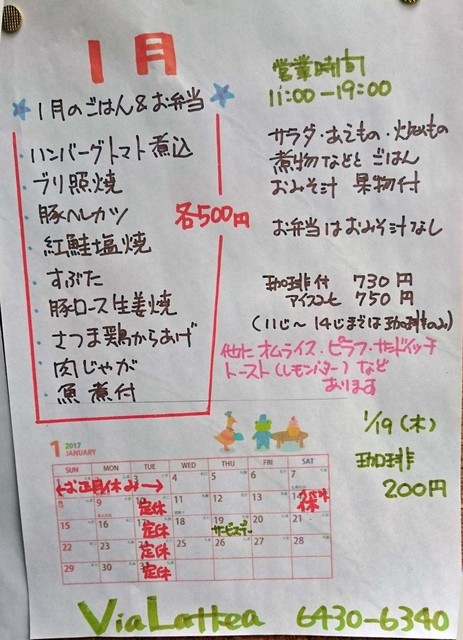 1月
1月のごはん&お弁当
ハンバーグトマト煮込
ブリ照焼
豚ヘレカツ
紅鮭塩焼
すぶた
豚ロース生姜焼
さつま鶏からあげ
肉じゃが
魚煮付
各500円
営業時間
11:00-19:00
サラダ・あえもの・炊もの
煮物などと ごはん
おみそ汁 果物付
お弁当はおみそ汁なし
珈琲付 730円
アイスコーヒ 750円
(11じ~14じまでは珈琲のみ)
他に オムライス・ピラフ・サンドイッチ
トースト(レモンバター)など
あります
1/19(木)
珈琲
200円
1 2017
JANUARY
SUN MON TUE WED THU FRI SAT
4 5 6 7
←お正月休み→
8 9 11 12 13 14
定休
休
15 16 18 19 20 21
定休 サービスデー
22 23 25 26 27 28
定休
29 30
定休
Via Lattea 6430-6340